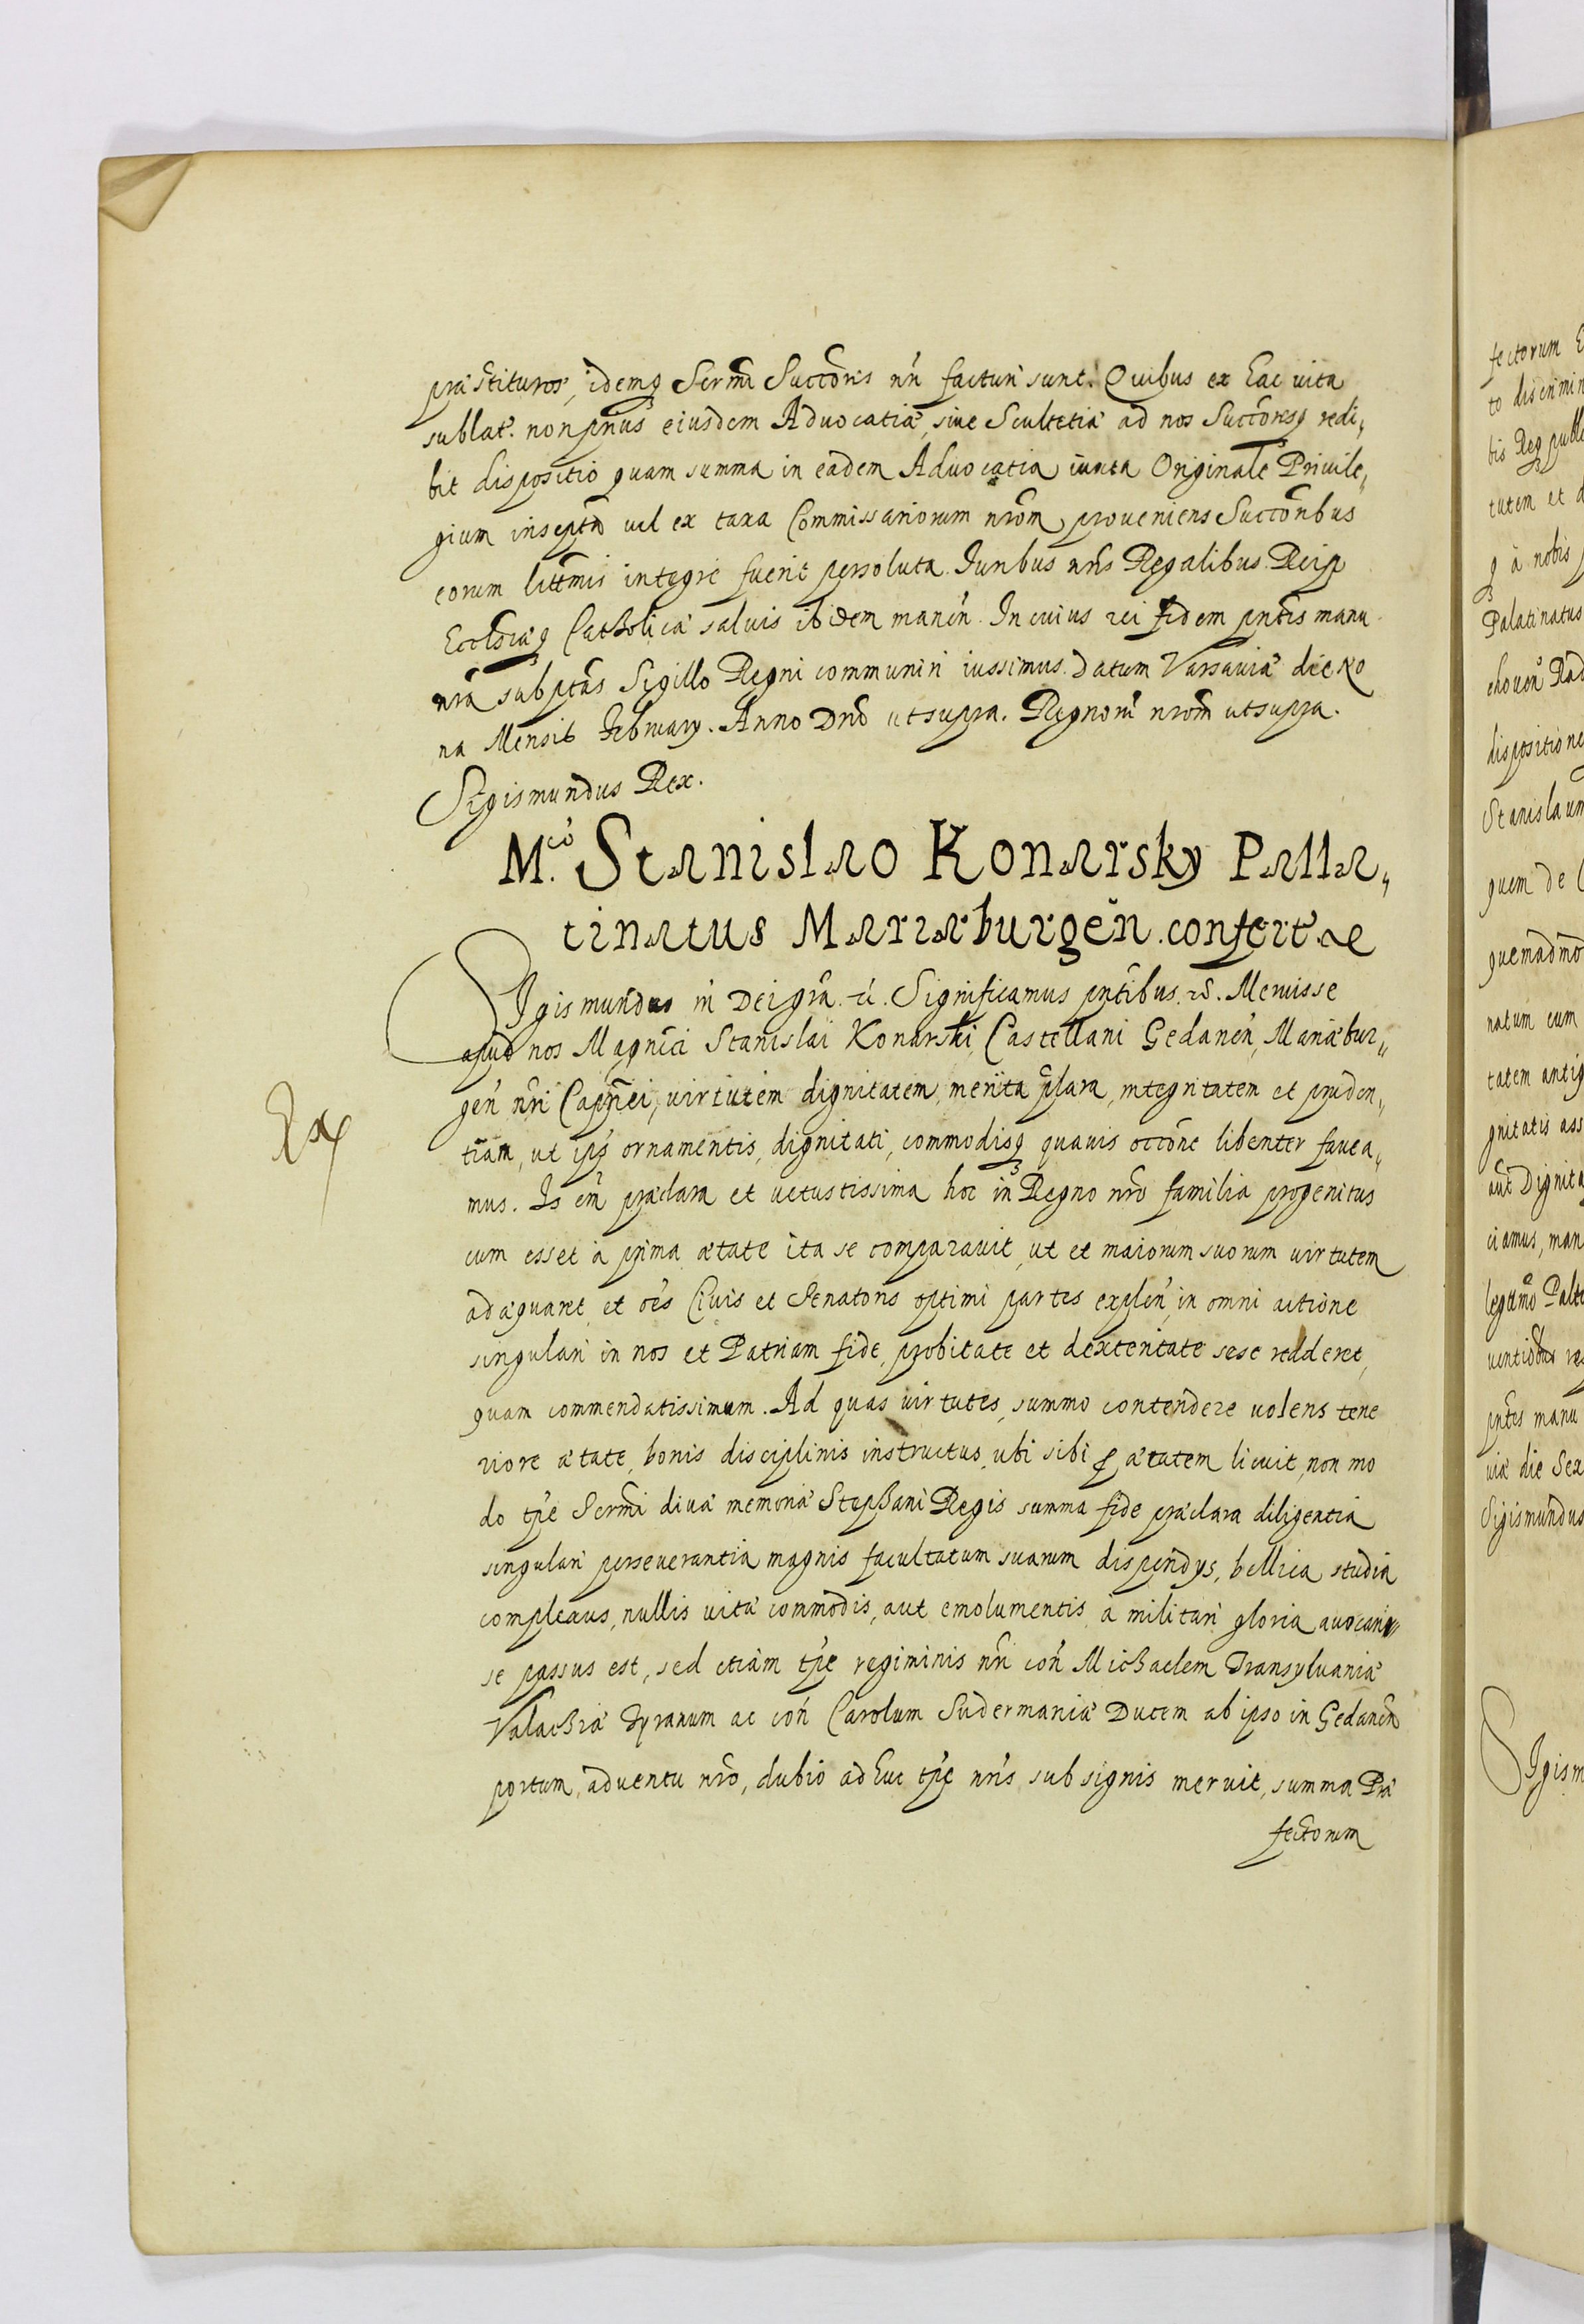 præstituros, idemq Sermi Succoris nri facturi sunt. Quibus ex hac vita
sublat. non prius eiusdem Advocatiæ, sive Scultetiæ ad nos Succoresq redi,
bit dispositio quam summa in eadem Advocatia iuxta Originale Privile,
gium inscpta vel ex taxa Commissariorum nrom proveniens Succoribus
eorum littmis integre fuerit persoluta. Iuribus nris Regalibus Reip
Ecclsiæq Catholicæ salvis ibidem manen. In cuius rei fidem pntes manu
nra subptas Sigillo Regni communiri iussimus. Datum Varsaviæ die No
na Mensis February. Anno Dno ut supra. Regnorum nrom ut supra.
Sigismundus Rex.
M.co Stanislao Konarsky Palla,
tinatus Mariæburgen. confert. ac
SIgismundus III Dei gra. etc. Significamus pntibus. etc. Meruisse
apud nos Magnici Stanislai Konarski, Castellani Gedanen, Mariæbur,
gen nri Capnei, virtutem dignitatem, merita plara, integritatem et pruden,
tiam, ut ips ornamentis, dignitati, commodisq quavis occone libenter favea,
mus. Is em præclara et vetustissima hoc in Regno nro familia progenitus
cum esset à prima ætate ita se comparavit, ut et maiorum suorum virtutem
adæquaret, et oes Civis et Senatoris optimi partes explen, in omni actione
singulari in nos et Patriam fide, probitate et dexteritate sese redderet,
quam commendatissimum. Ad quas virtutes, summo contendere volens tene
riore ætate, bonis disciplinis instructus, ubi sibi p ætatem licuit, non mo
do tpe Sermi divæ memoriæ Stephani Regis summa fide præclara diligentia
singulari perseverantia magnis facultatum suarum dispendys, bellica studia
complexus, nullis vitæ commodis, aut emolumentis à militari gloria avocari
se passus est, sed etiam tpe regiminis nri con Michaelem Transylvaniæ
Valachiæ Tyranum ac con Carolum Sudermaniæ Ducem ab ipso in Gedanen
portum, adventu nro, dubio adhuc tpe nris sub signis meruit, summa Præ
fectorum
Ex